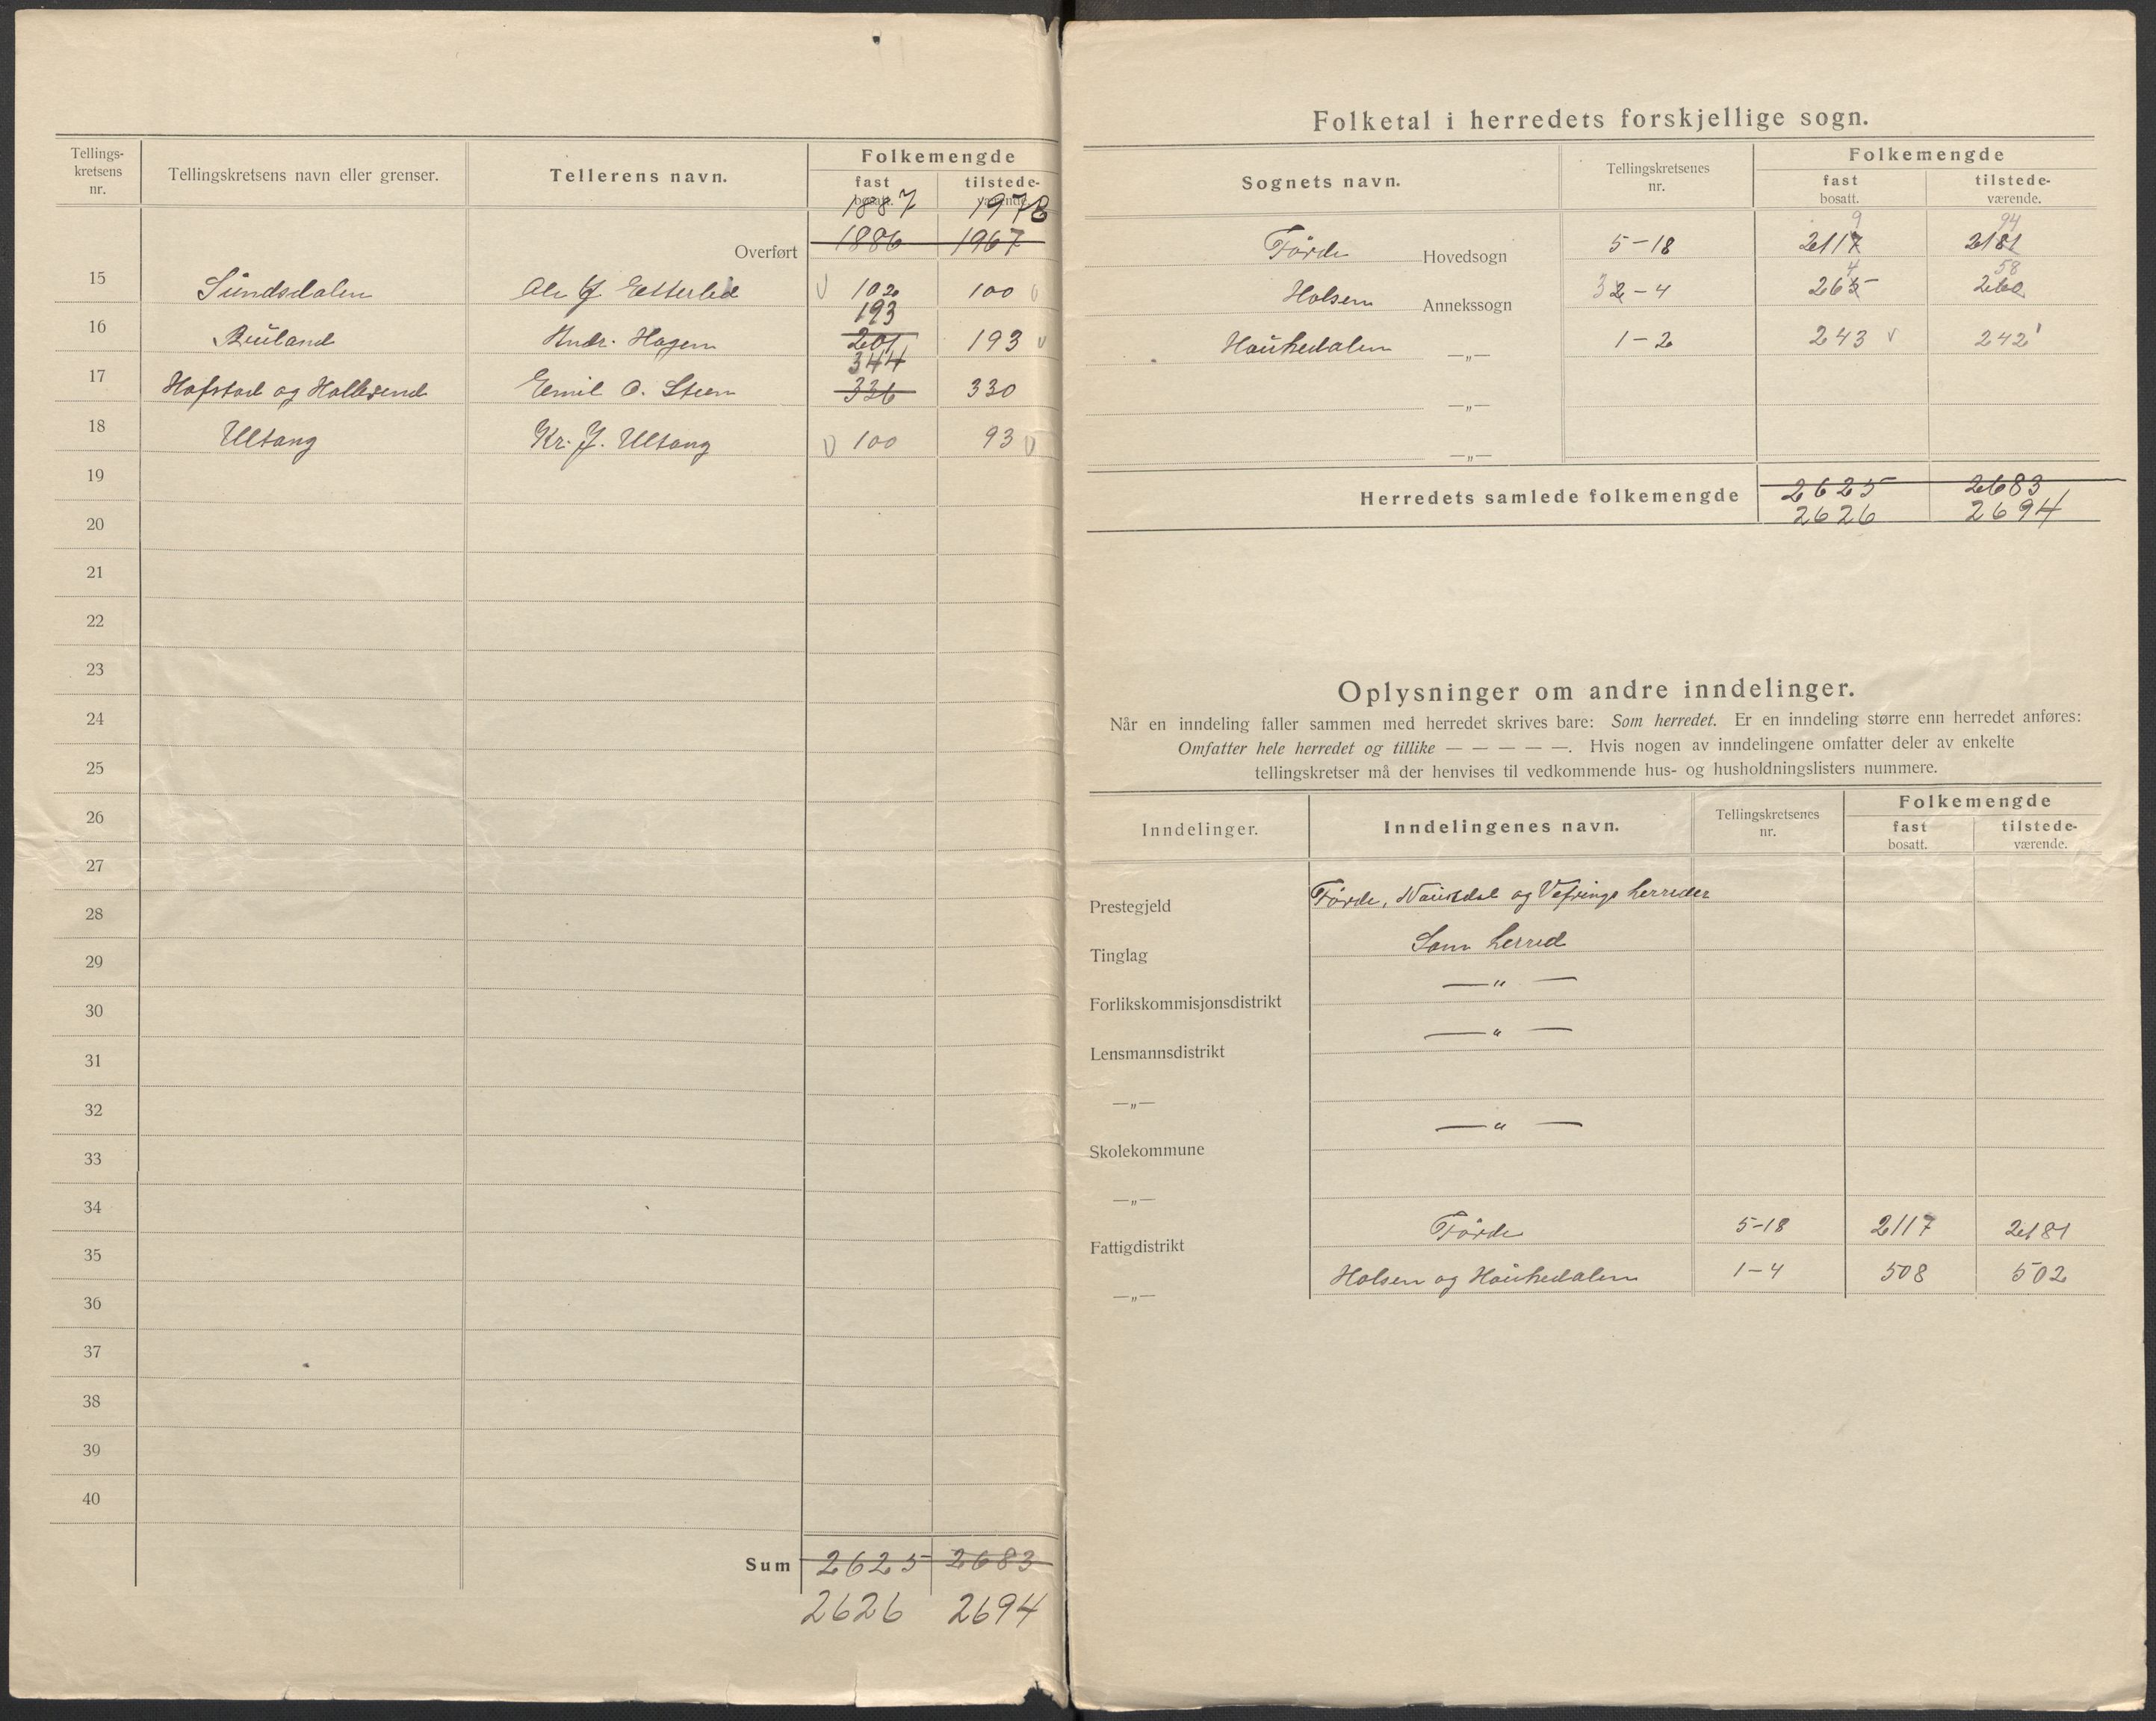 Tellings-
kretsens
nr.
Tellingskretsens navn eller grenser.
Tellerens navn.
Folkemengde
fast
bosatt.
tilstede-
værende.
1887 1978
Overført 1886 1967
15 Sundsdalen Ole J. Etterlid 102 100
193
16 Ruland Andr. Hagen 201 193
344
17 Hafstad og Halbrend Emil O. Steen 336 330
18 Ultang Kr. J. Ultang 100 93
19
20
21
22
23
24
25
26
27
28
29
30
31
32
33
34
35
36
37
38
39
40
Sum 2625 2683
2626 2694
Folketal i herredets forskjellige sogn.
Sognets navn.
Tellingskretsenes
nr.
Folkemengde
fast
bosatt.
tilstede-
værende.
9 94
Førde Hovedsogn 5-18 2117 2181
4 58
Holsen Annekssogn 32-4 265 260
Haukedalen —„— 1-2 243 242
—„—
—„—
Herredets samlede folkemengde 2625 2683
2626 2694
Oplysninger om andre inndelinger.
Når en inndeling faller sammen med herredet skrives bare: Som herredet. Er en inndeling større enn herredet anføres:
Omfatter hele herredet og tillike — — — — —. Hvis nogen av inndelingene omfatter deler av enkelte
tellingskretser må der henvises til vedkommende hus- og husholdningslisters nummere.
Inndelinger.
Inndelingenes navn.
Tellingskretsenes
nr.
Folkemengde
fast
bosatt.
tilstede-
værende.
Prestegjeld Førde, Naustdal og Vefrings herreder
Tinglag Som herred
Forlikskommisjonsdistrikt — „ —
Lensmannsdistrikt — „ —
—„—
Skolekommune — „ —
—„—
Fattigdistrikt Førde 5-18 2117 2181
—„— Holsen og Haukedalen 1-4 508 502